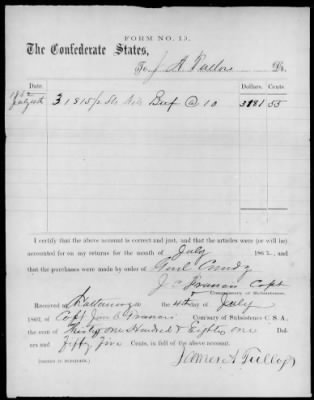 FORM NO. 15.
The Confederate States,
To J. A. Tullos Dr.
Date. Dollars. Cents
1862
July 4th 31815½ lbs Beef @ 10 3181 55
I certify that the above account is correct and just, and that the articles were (or will be)
accounted for on my returns for the month of July 1862, and
that the purchases were made by order of Genl
J. C. Francis Capt
Commissary of Subsistence.
Received at Chattanooga the 4th day of July
1862, of Capt Jno C Francis Commissary of Subsistence C. S. A.,
the sum of Thirty one Hundred & Eighty one Dol-
lars and Fifty Five Cents, in full of the above account.
[SIGNED IN DUPLICATE.]
James A Tullos